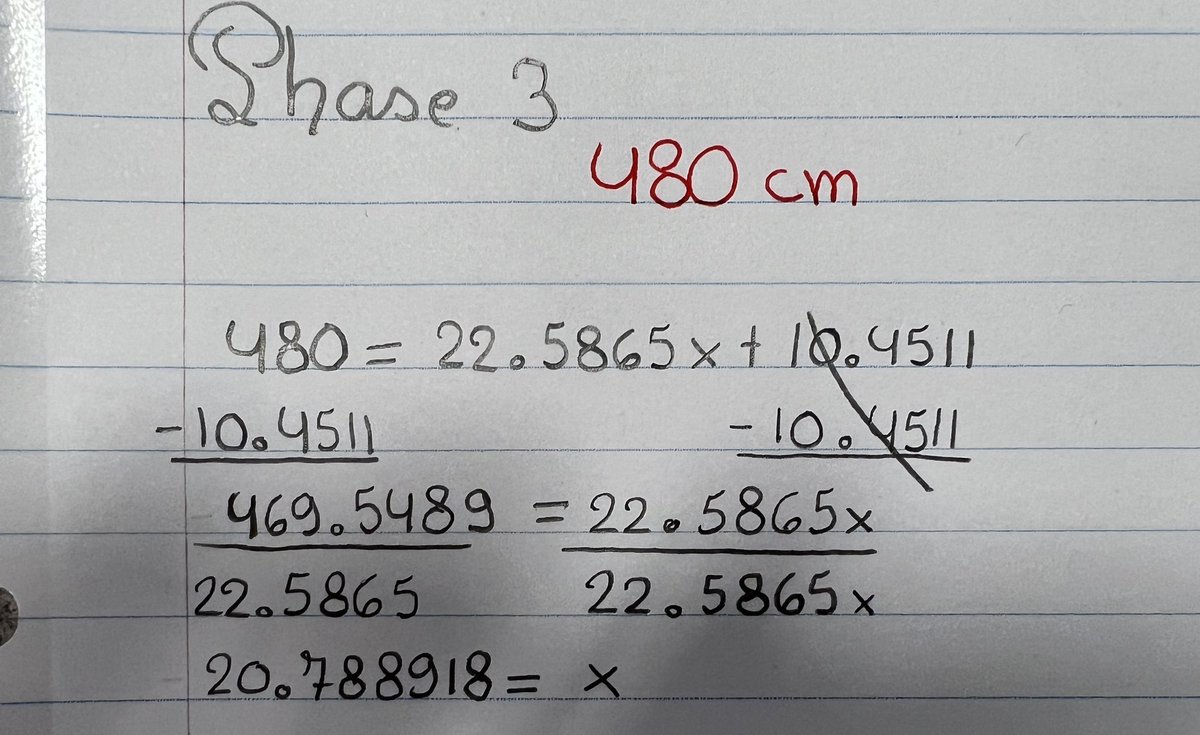 Phase 3
480 cm
480 = 22.5865x + 10.4511
-10.4511 -10.4511
469.5489 = 22.5865x
22.5865 22.5865x
20.788918 = x